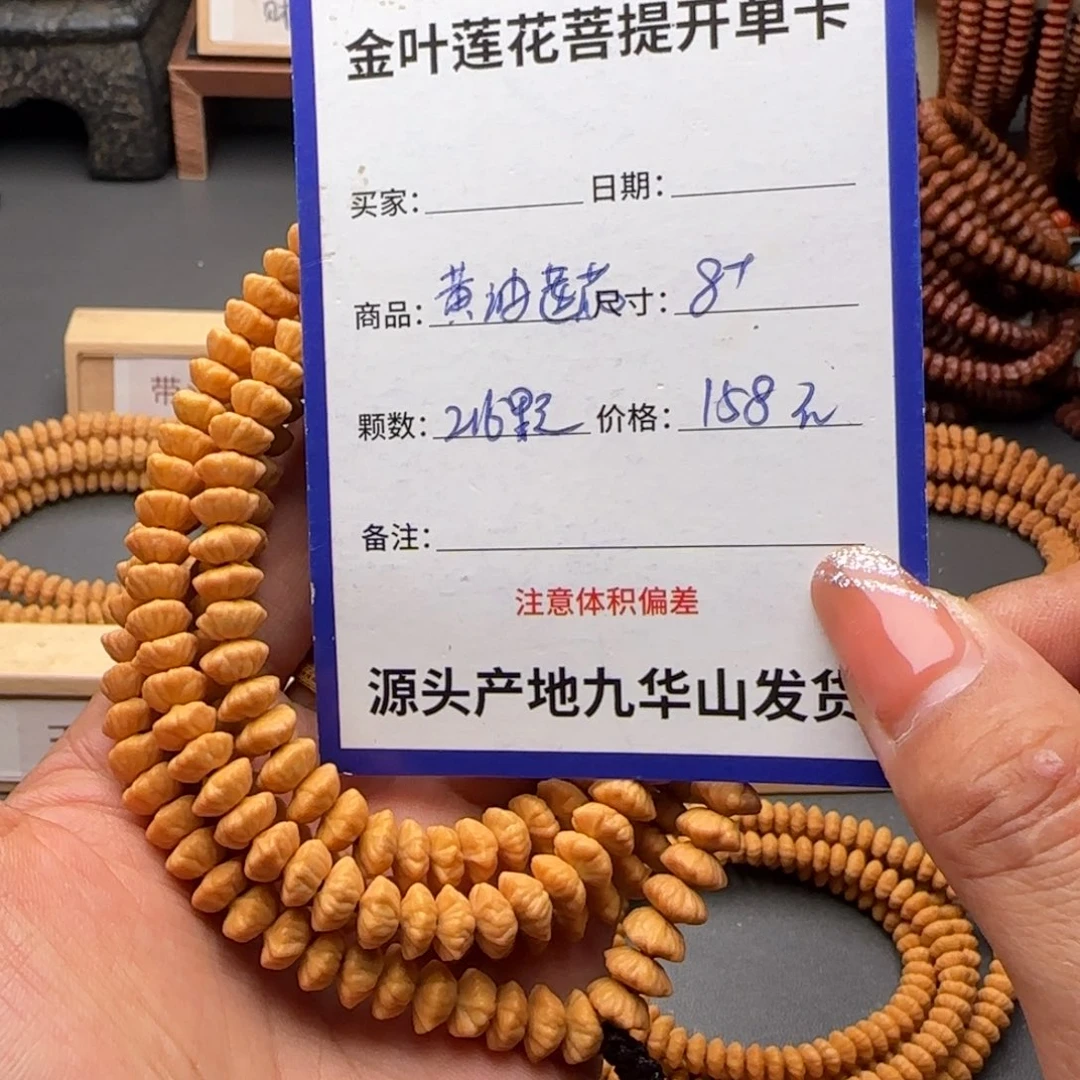 金叶莲花菩提开单卡
买家： 日期：
商品：黄油莲花 尺寸：8+
颗数：216颗 价格：158元
备注：
注意体积偏差
源头产地九华山发货
带